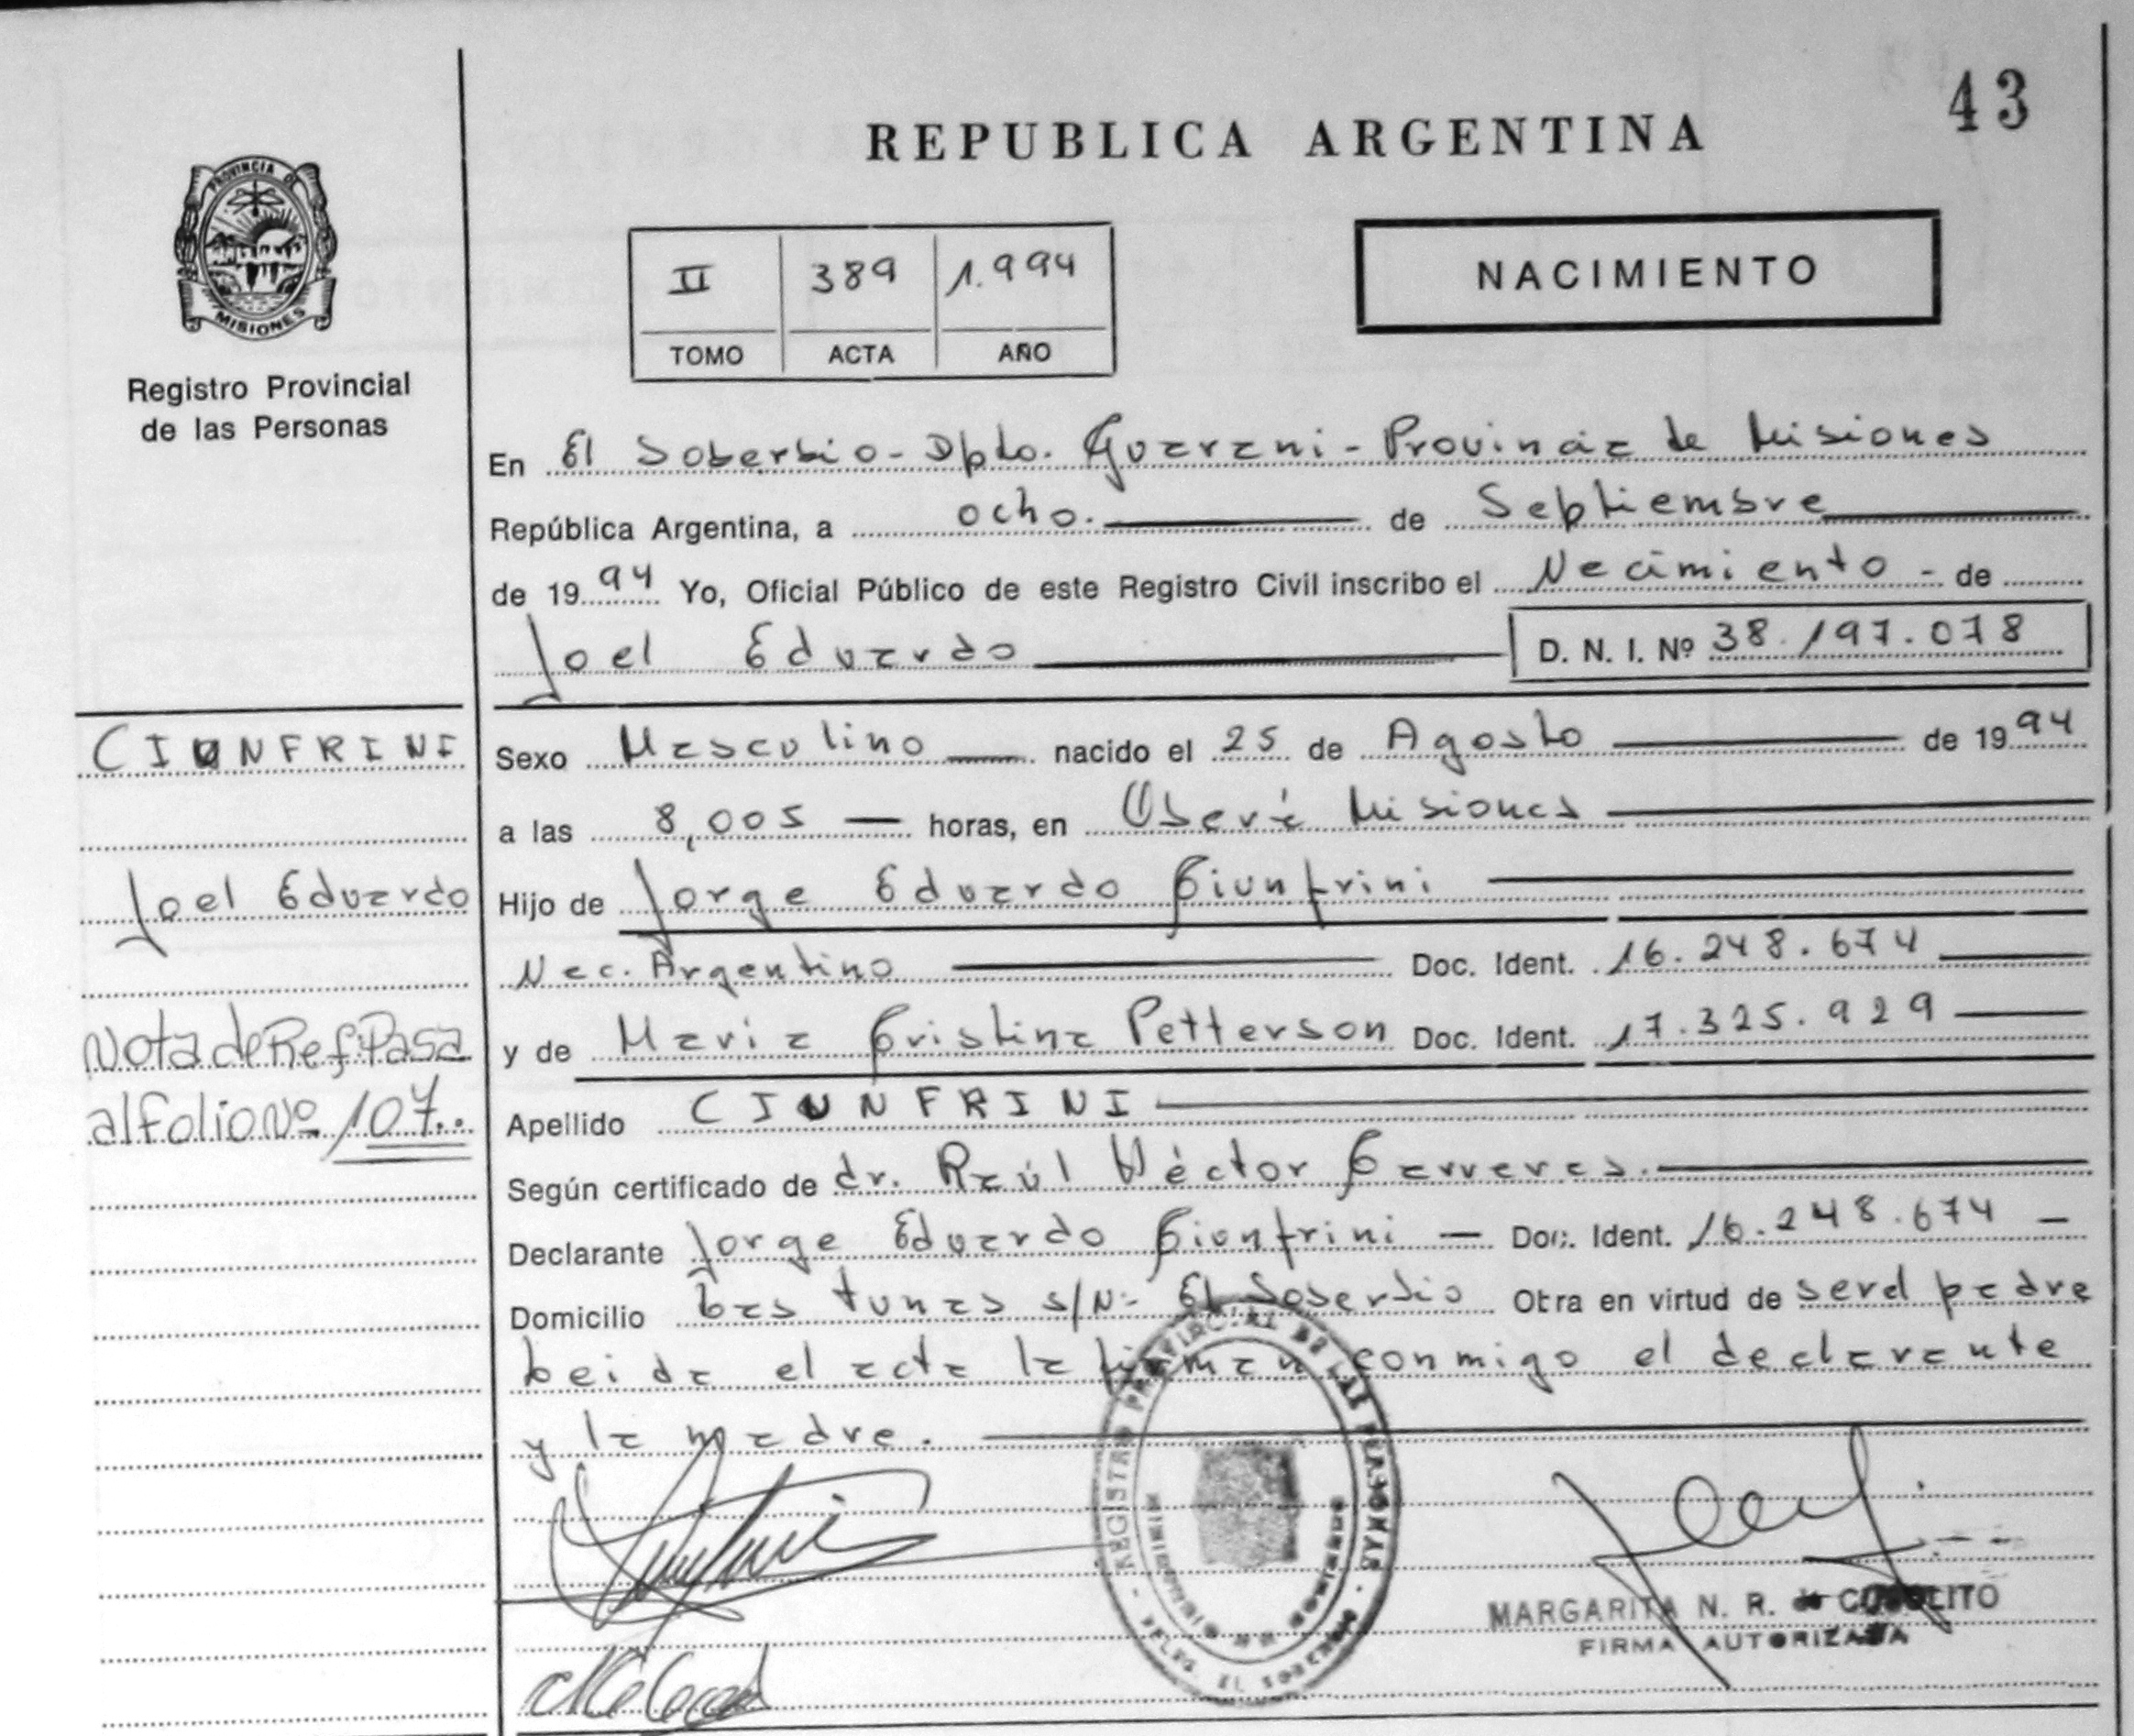 43
REPUBLICA ARGENTINA
PROVINCIA DE
MISIONES
Registro Provincial
de las Personas
II 389 1.994
TOMO ACTA AÑO
NACIMIENTO
En El Soberbio - Dpto. Guarani - Provincia de Misiones
República Argentina, a ocho. de Septiembre
de 19 94 Yo, Oficial Público de este Registro Civil inscribo el Nacimiento - de
Joel Eduardo D. N. I. Nº 38.197.078
CIUNFRINI
Sexo Masculino nacido el 25 de Agosto de 19 94
a las 8,005 horas, en Oberá Misiones
Joel Eduardo
Hijo de Jorge Eduardo Ciunfrini
Nac. Argentino Doc. Ident. 16.248.674
Nota de Ref. Pasa
al Folio Nº 107..
y de Maria Cristina Petterson Doc. Ident. 17.325.929
Apellido CIUNFRINI
Según certificado de dr. Raúl Héctor Carreras.
Declarante Jorge Eduardo Ciunfrini - Doc. Ident. 16.248.674 -
Domicilio Las tunas s/Nº- El Soberbio Obra en virtud de ser el padre
Leida el acta la firman conmigo el declarante
y la madre.
REGISTRO PROVINCIAL DE LAS PERSONAS
MARGARITA N. R. de
FIRMA AUTORIZADA